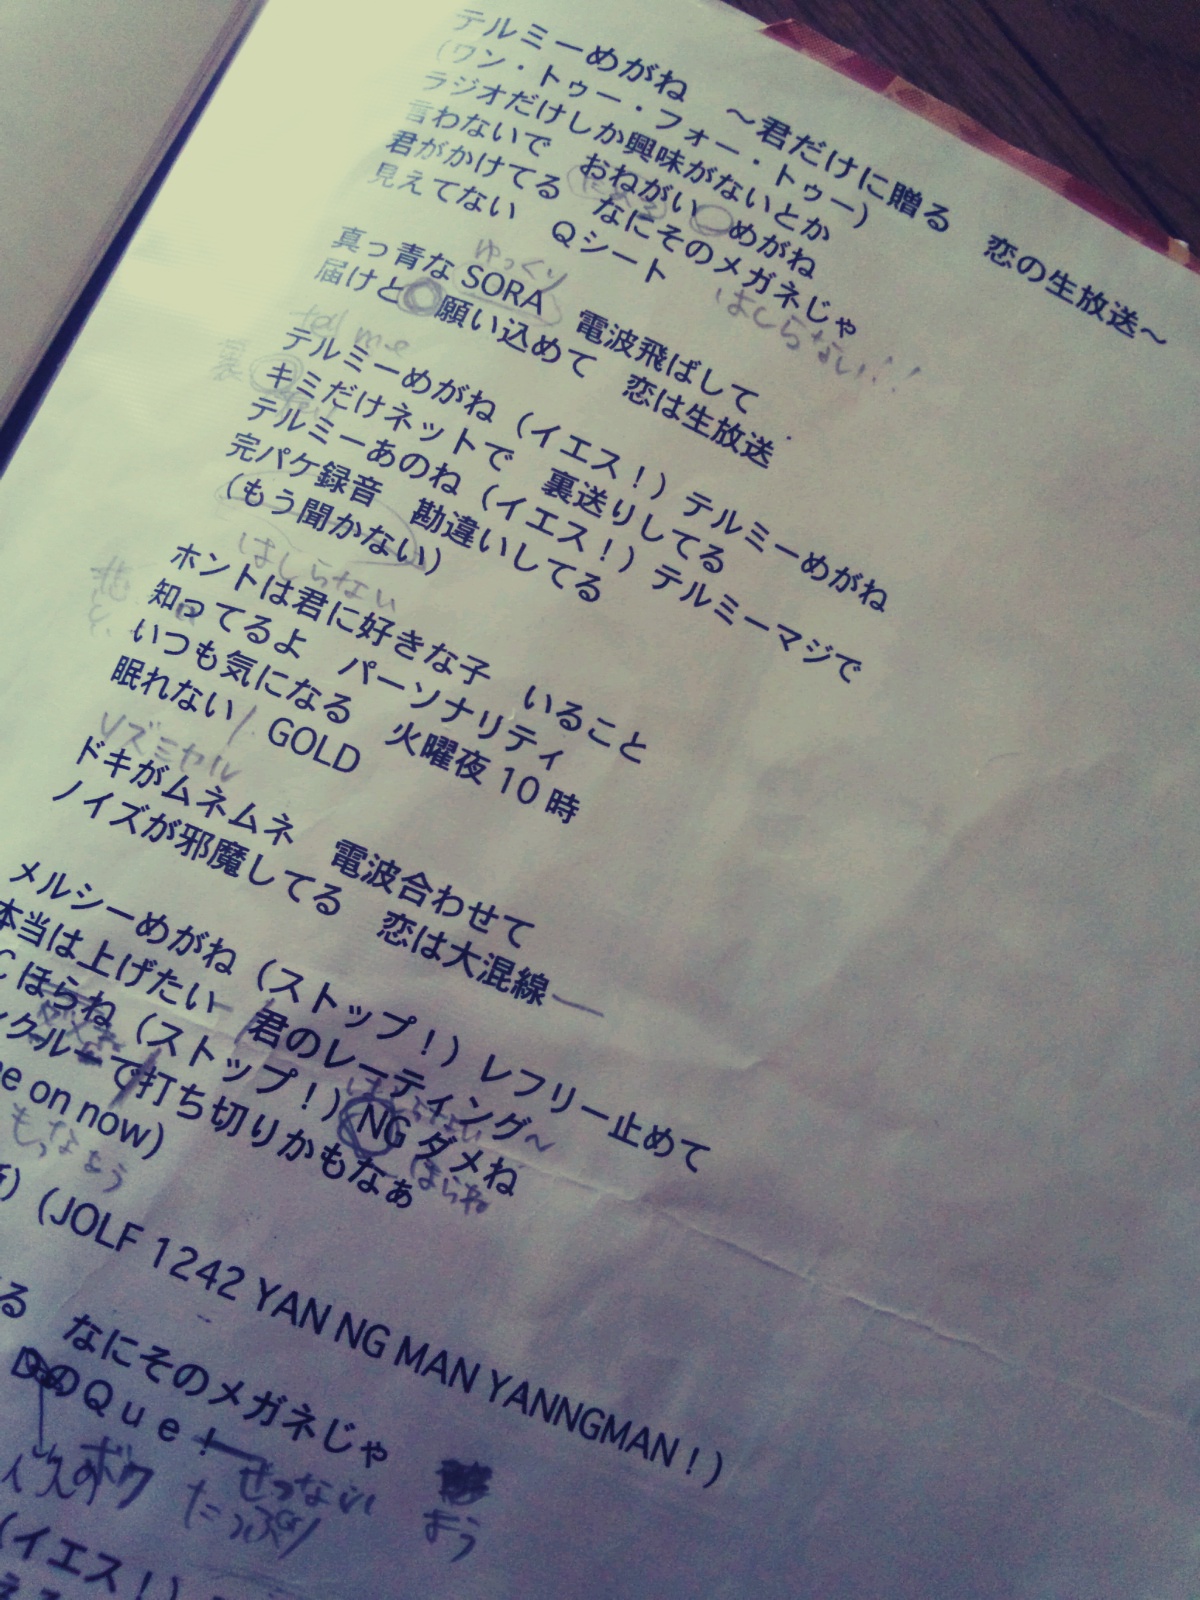 テルミーめがね　〜君だけに贈る　恋の生放送〜
（ワン・トゥー・フォー・トゥー）
ラジオだけしか興味がないとか
言わないで　おねがい　めがね
君がかけてる　なにそのメガネじゃ
見えてない　Qシート
はしらない!!
ゆっくり
真っ青な SORA　電波飛ばして
届けと　願い込めて　恋は生放送
tell me
テルミーめがね（イエス！）テルミーめがね
裏
キミだけネットで　裏送りしてる
テルミーあのね（イエス！）テルミーマジで
完パケ録音　勘違いしてる
（もう聞かない）
はしらない
ホントは君に好きな子　いること
知ってるよ　パーソナリティ
いつも気になる　火曜夜 10 時
眠れない / GOLD
リズミカル
ドキがムネムネ　電波合わせて
ノイズが邪魔してる　恋は大混線
メルシーめがね（ストップ！）レフリー止めて
本当は上げたい　君のレーティング〜
ほらね（ストップ！）NG ダメね
はしらない
ほらね
クルーで打ち切りかもなぁ
e on now)
もっなぁう
)（JOLF 1242 YAN NG MAN YANNGMAN！）
る　なにそのメガネじゃ
のＱｕｅ！
ボク
せつない
たっぷり
まう
（イエス！）